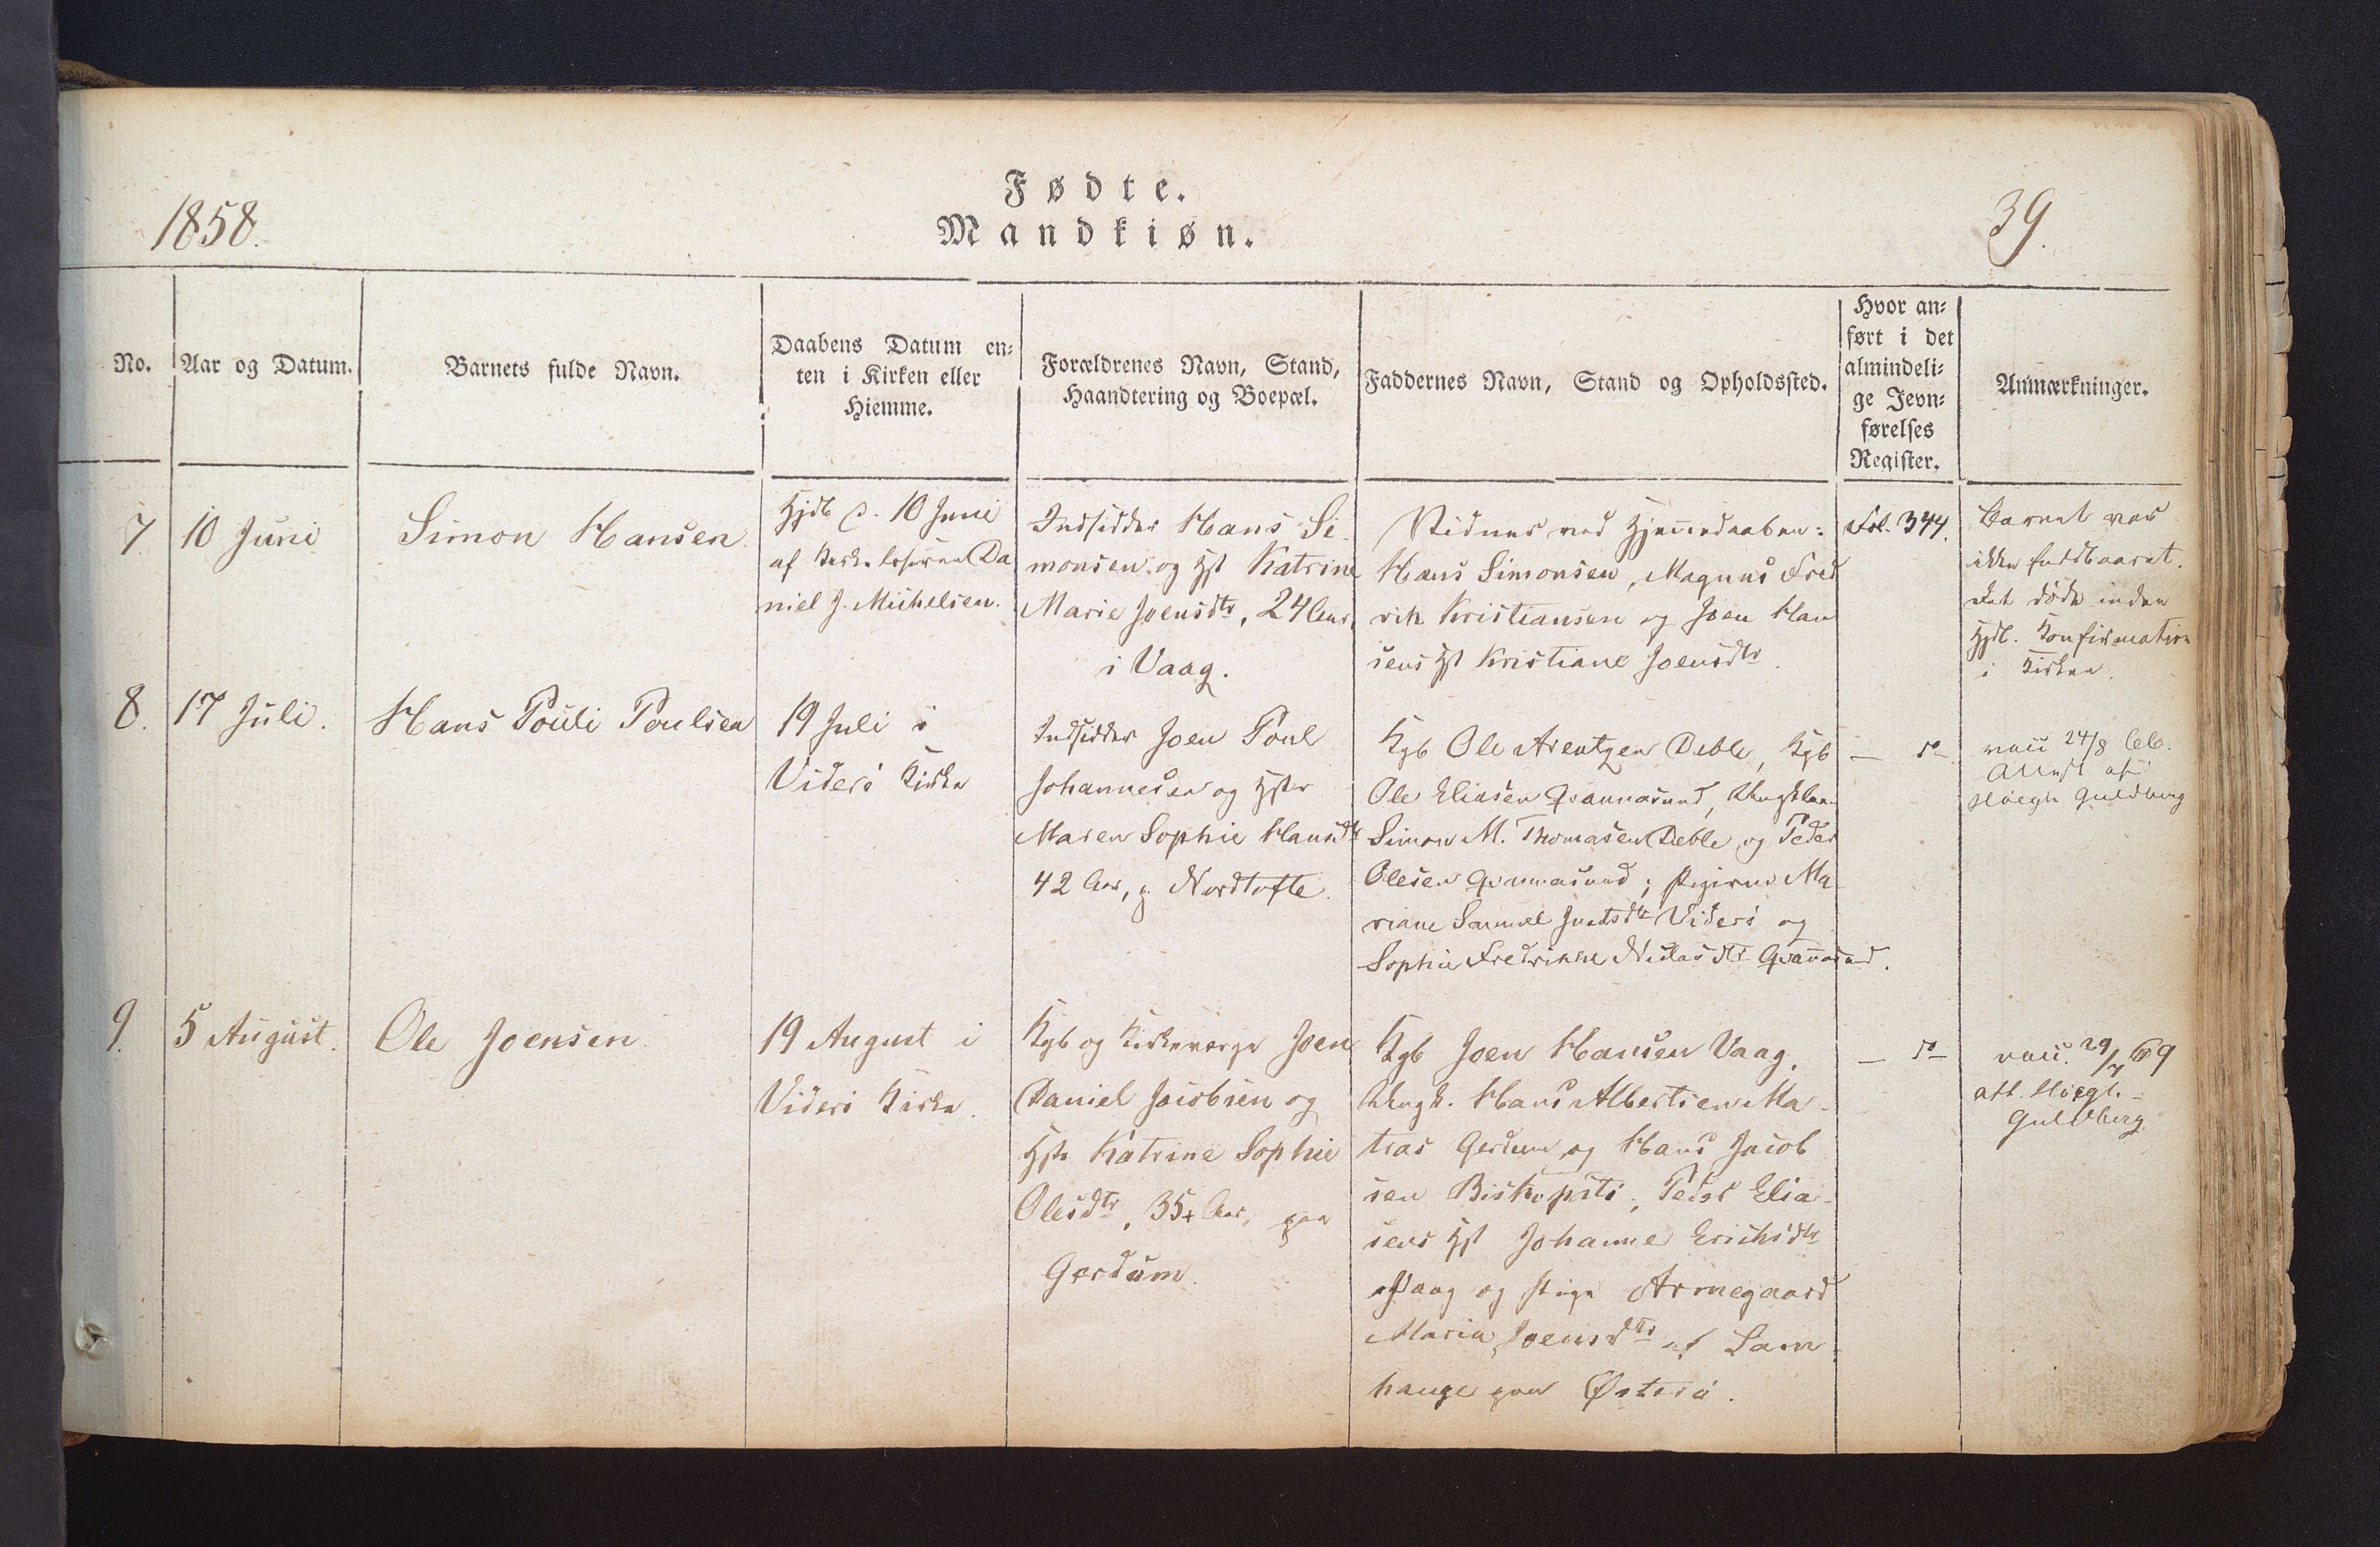 Fødte.
1858.
39.
Mandkiøn.
No.
Aar og Datum.
Barnets fulde Navn.
Daabens Datum en=
ten i Kirken eller
Hiemme.
Forældrenes Navn, Stand,
Haandtering og Boepæl.
Faddernes Navn, Stand og Opholdssted.
Hvor an=
ført i det
almindeli=
ge Jevn=
førelses
Register.
Anmærkninger.
7
10 Juni
Simon Hansen.
Hjdb d. 10 Juni
af Kirkelæseren Da
niel J. Michelsen.
Indsidder Hans Si
monsen og Hst Katrine
Marie Joensdtr, 24 Aar,
i Vaag.
Vidner ved Hjemmedaaben:
Hans Simonsen, Magnus Fred
rik Kristiansen og Joen Han
sens Hst Kristiane Joensdtr.
Fol. 344.
Barnet var
ikke fuldbaaret.
Det døde inden
Hjdb. Konfirmation
i Kirken.
8.
17 Juli.
Hans Pouli Poulsen
19 Juli i
Viderø Kirke
Indsidder Joen Poul
Johannesen og Hstr
Maren Sophie Hansdtr
42 Aar, i Nordtofte.
Kgb Ole Arentzen Deble, Kgb
Ole Eliasen Qvannasund, Ungkarl
Simon M. Thomasen Deble og Peder
Olesen Qvannasund; Pigerne Ma
riane Samuel Dtr Viderø og
Sophie Fredrikke Niclasdtr Qvannasund.
— do
vacc 24/8
Attest af
Høegh Guldberg
9.
5 August.
Ole Joensen
19 August i
Viderø Kirke.
Kgb og Kirkeværge Joen
Daniel Jacobsen og
Hst Katrine Sophie
Olesdtr, 35 Aar, paa
Gerdum.
Kgb Joen Hansen Vaag,
Ungk. Hans Albertsen Ma
tras Gerdum og Hans Jacob
sen Biskopstø, Peder Elia
sens Hst Johanne Erichsdtr
Vaag og Pige Armegaard
Maria Joensdtr af Lam
hauge paa Østerø.
— do
vacc. 29/7 69
att. Høegh-
Guldberg